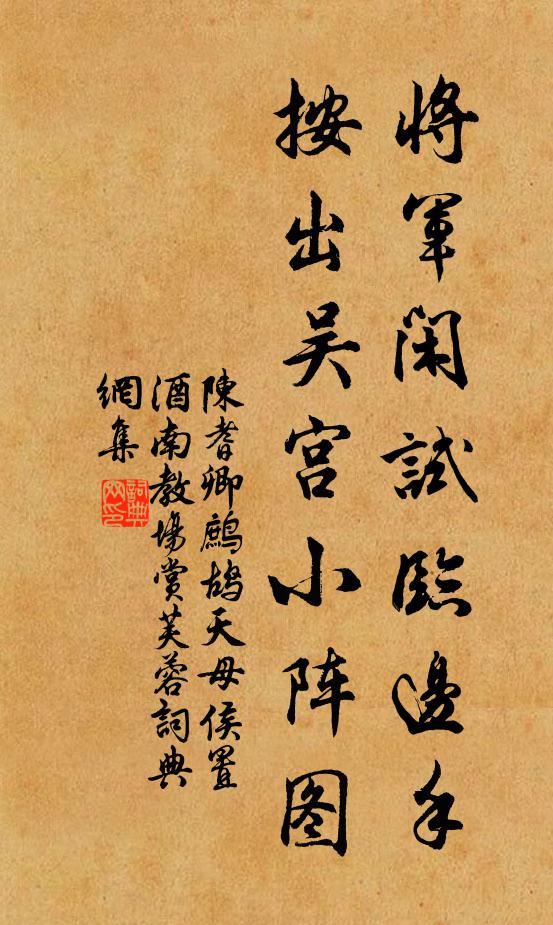 將軍閑試臨邊手
按出吴宫小阵图
陳耆卿鷓鴣天母侯置
酒南教場賞芙蓉詞典
網集
詞典
网印